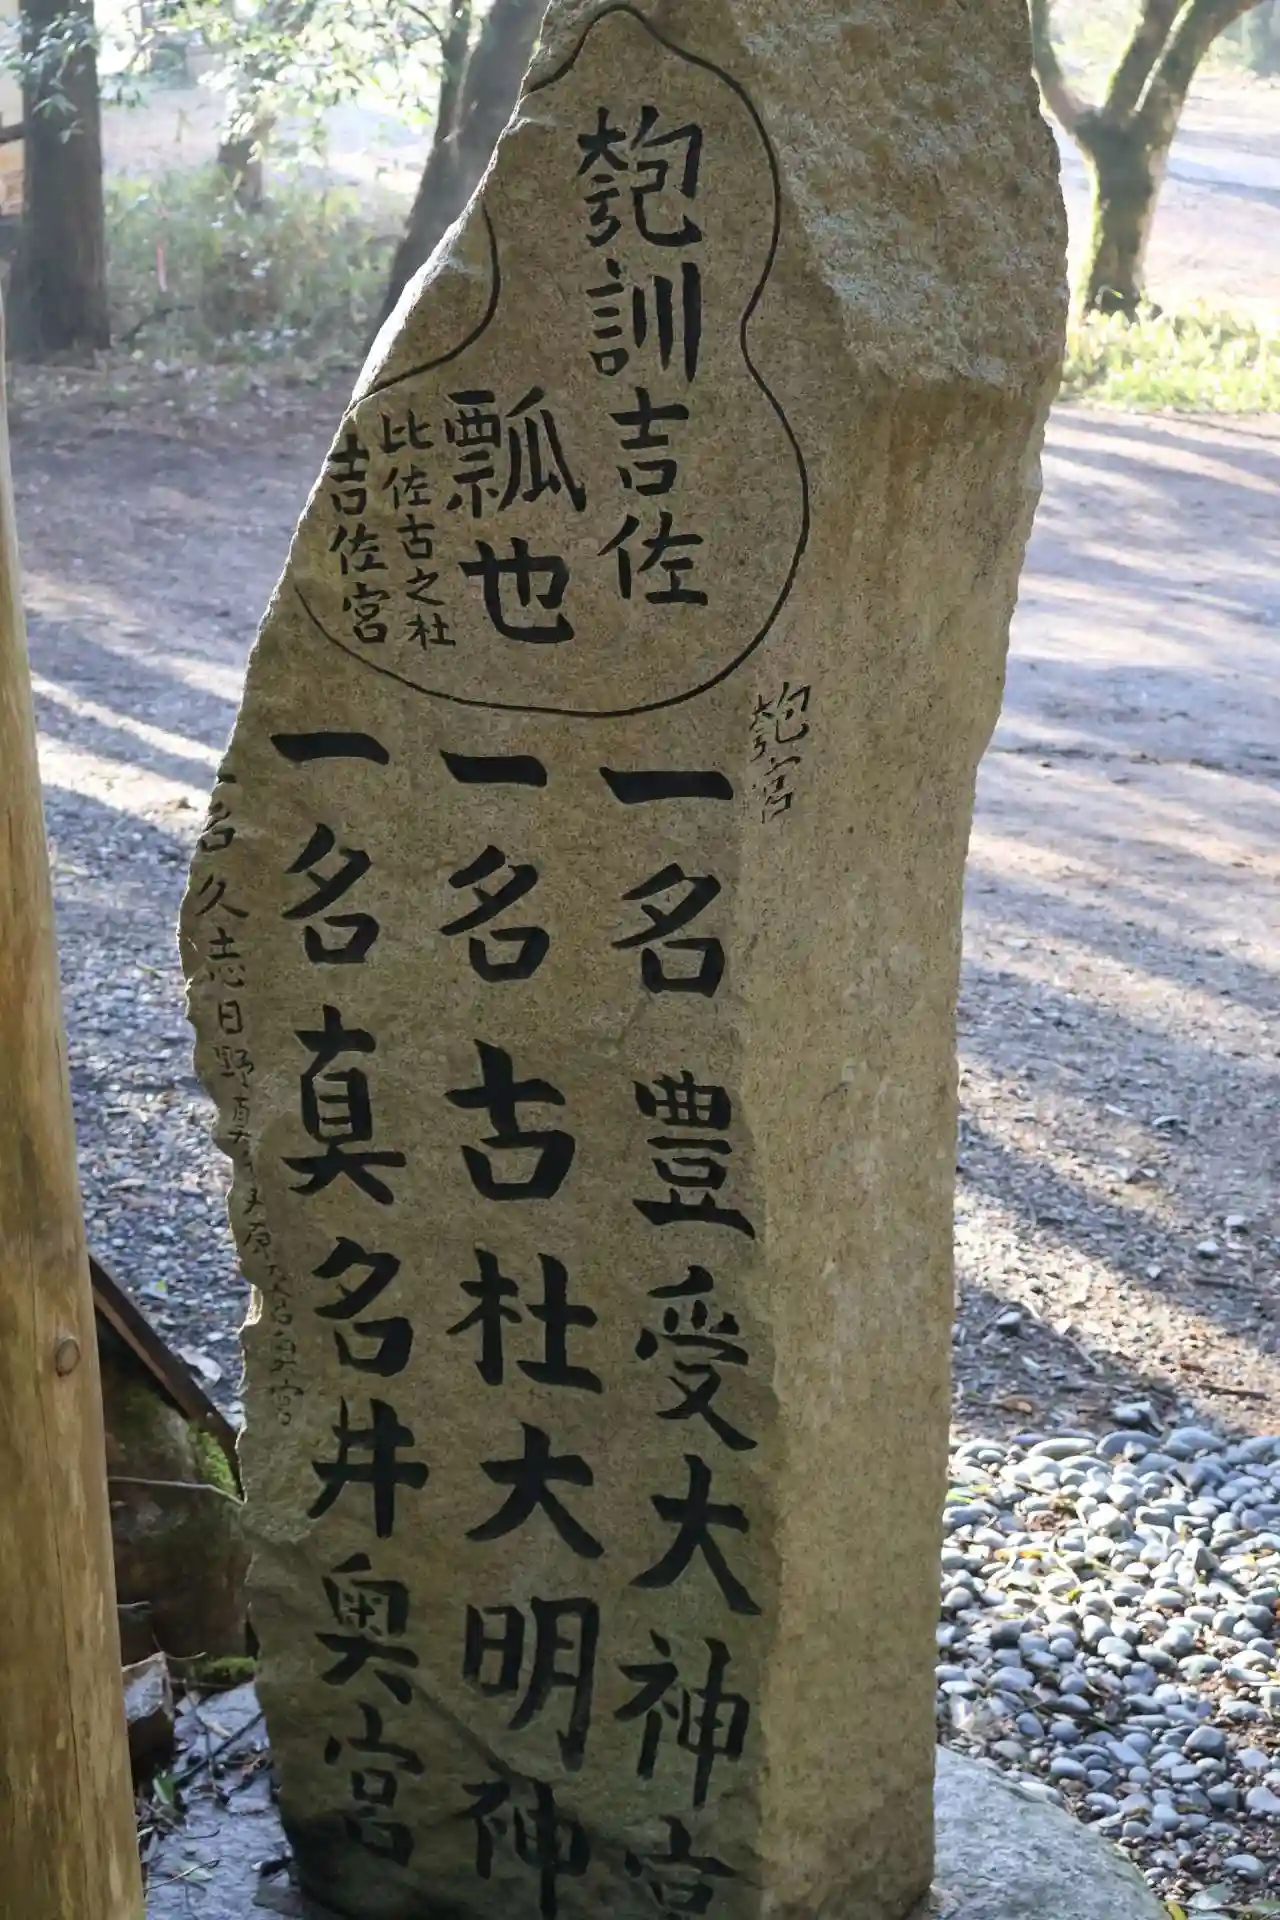 匏訓吉佐
瓢也
比佐古之社
吉佐宮
匏宮
一名豊受大神宮
一名古社大明神
一名真名井奥宮
一名久志日野真
宮